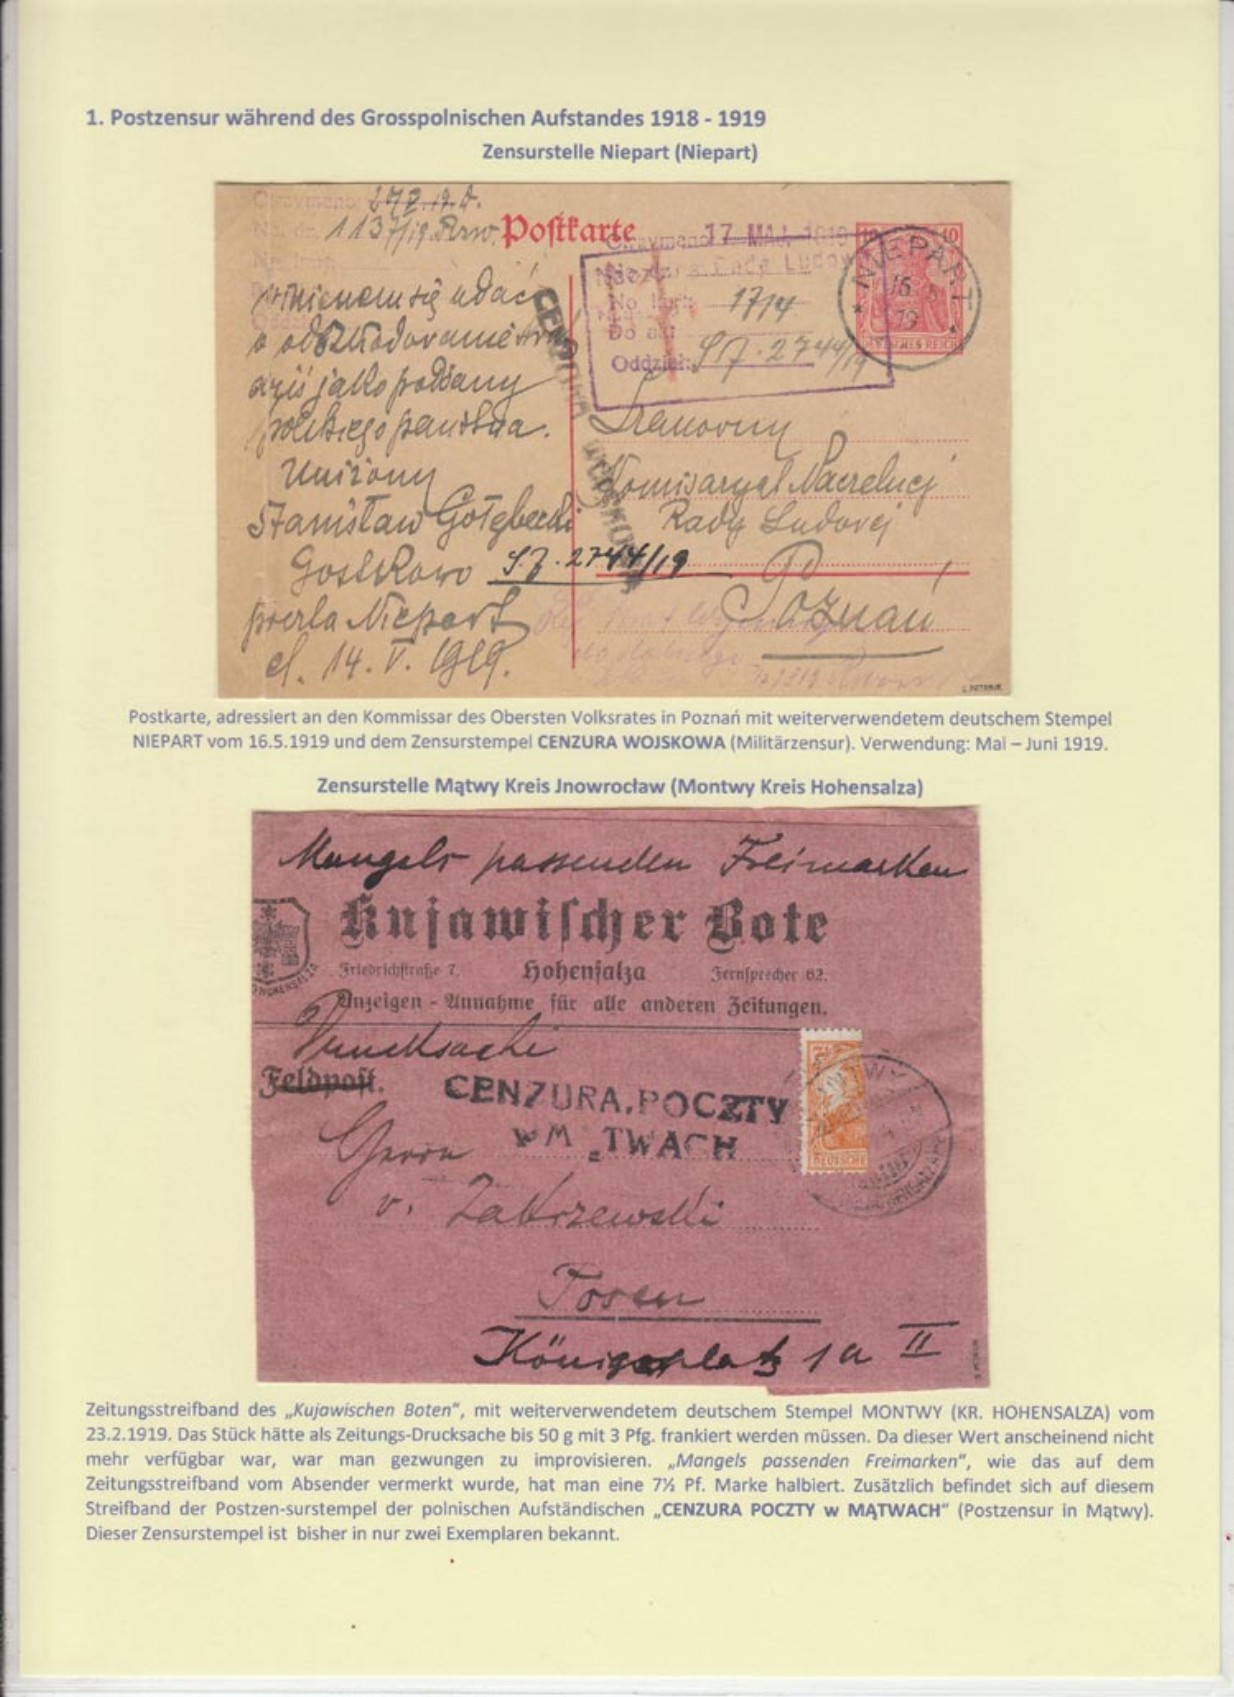 1. Postzensur während des Grosspolnischen Aufstandes 1918 - 1919
Zensurstelle Niepart (Niepart)
Otrzymano
1137/19
Postkarte
Otrzymano 17 MAJ 1919
Naczelna Rada Ludowa
No
1714
Do akt
Oddział: S.J. 2744/19
10 10
DEUTSCHES REICH
NIEPART
16 5
19
CENZURA WOJSKOWA
udać
o odszkodowanie
dziś jako poddany
polskiego państwa.
Uniżony
Stanisław
Gostkowo
S.J. 2744/19
Niepart
d. 14. V. 1919.
Szanowny
Komisaryat Naczelnej
Rady Ludowej
Poznań
Postkarte, adressiert an den Kommissar des Obersten Volksrates in Poznań mit weiterverwendetem deutschem Stempel
NIEPART vom 16.5.1919 und dem Zensurstempel CENZURA WOJSKOWA (Militärzensur). Verwendung: Mai – Juni 1919.
Zensurstelle Mątwy Kreis Jnowrocław (Montwy Kreis Hohensalza)
Mangels passenden Freimarken
Kujawischer Bote
Friedrichstraße 7. Hohensalza Fernsprecher 62.
Anzeigen - Annahme für alle anderen Zeitungen.
Drucksache
Feldpost.
CENZURA.POCZTY
w M TWACH
Herrn
v. Zakrzewski
Posen
Königsplatz 1a II
Zeitungsstreifband des „Kujawischen Boten“, mit weiterverwendetem deutschem Stempel MONTWY (KR. HOHENSALZA) vom
23.2.1919. Das Stück hätte als Zeitungs-Drucksache bis 50 g mit 3 Pfg. frankiert werden müssen. Da dieser Wert anscheinend nicht
mehr verfügbar war, war man gezwungen zu improvisieren. „Mangels passenden Freimarken“, wie das auf dem
Zeitungsstreifband vom Absender vermerkt wurde, hat man eine 7½ Pf. Marke halbiert. Zusätzlich befindet sich auf diesem
Streifband der Postzen-surstempel der polnischen Aufständischen „CENZURA POCZTY w MĄTWACH“ (Postzensur in Mątwy).
Dieser Zensurstempel ist bisher in nur zwei Exemplaren bekannt.